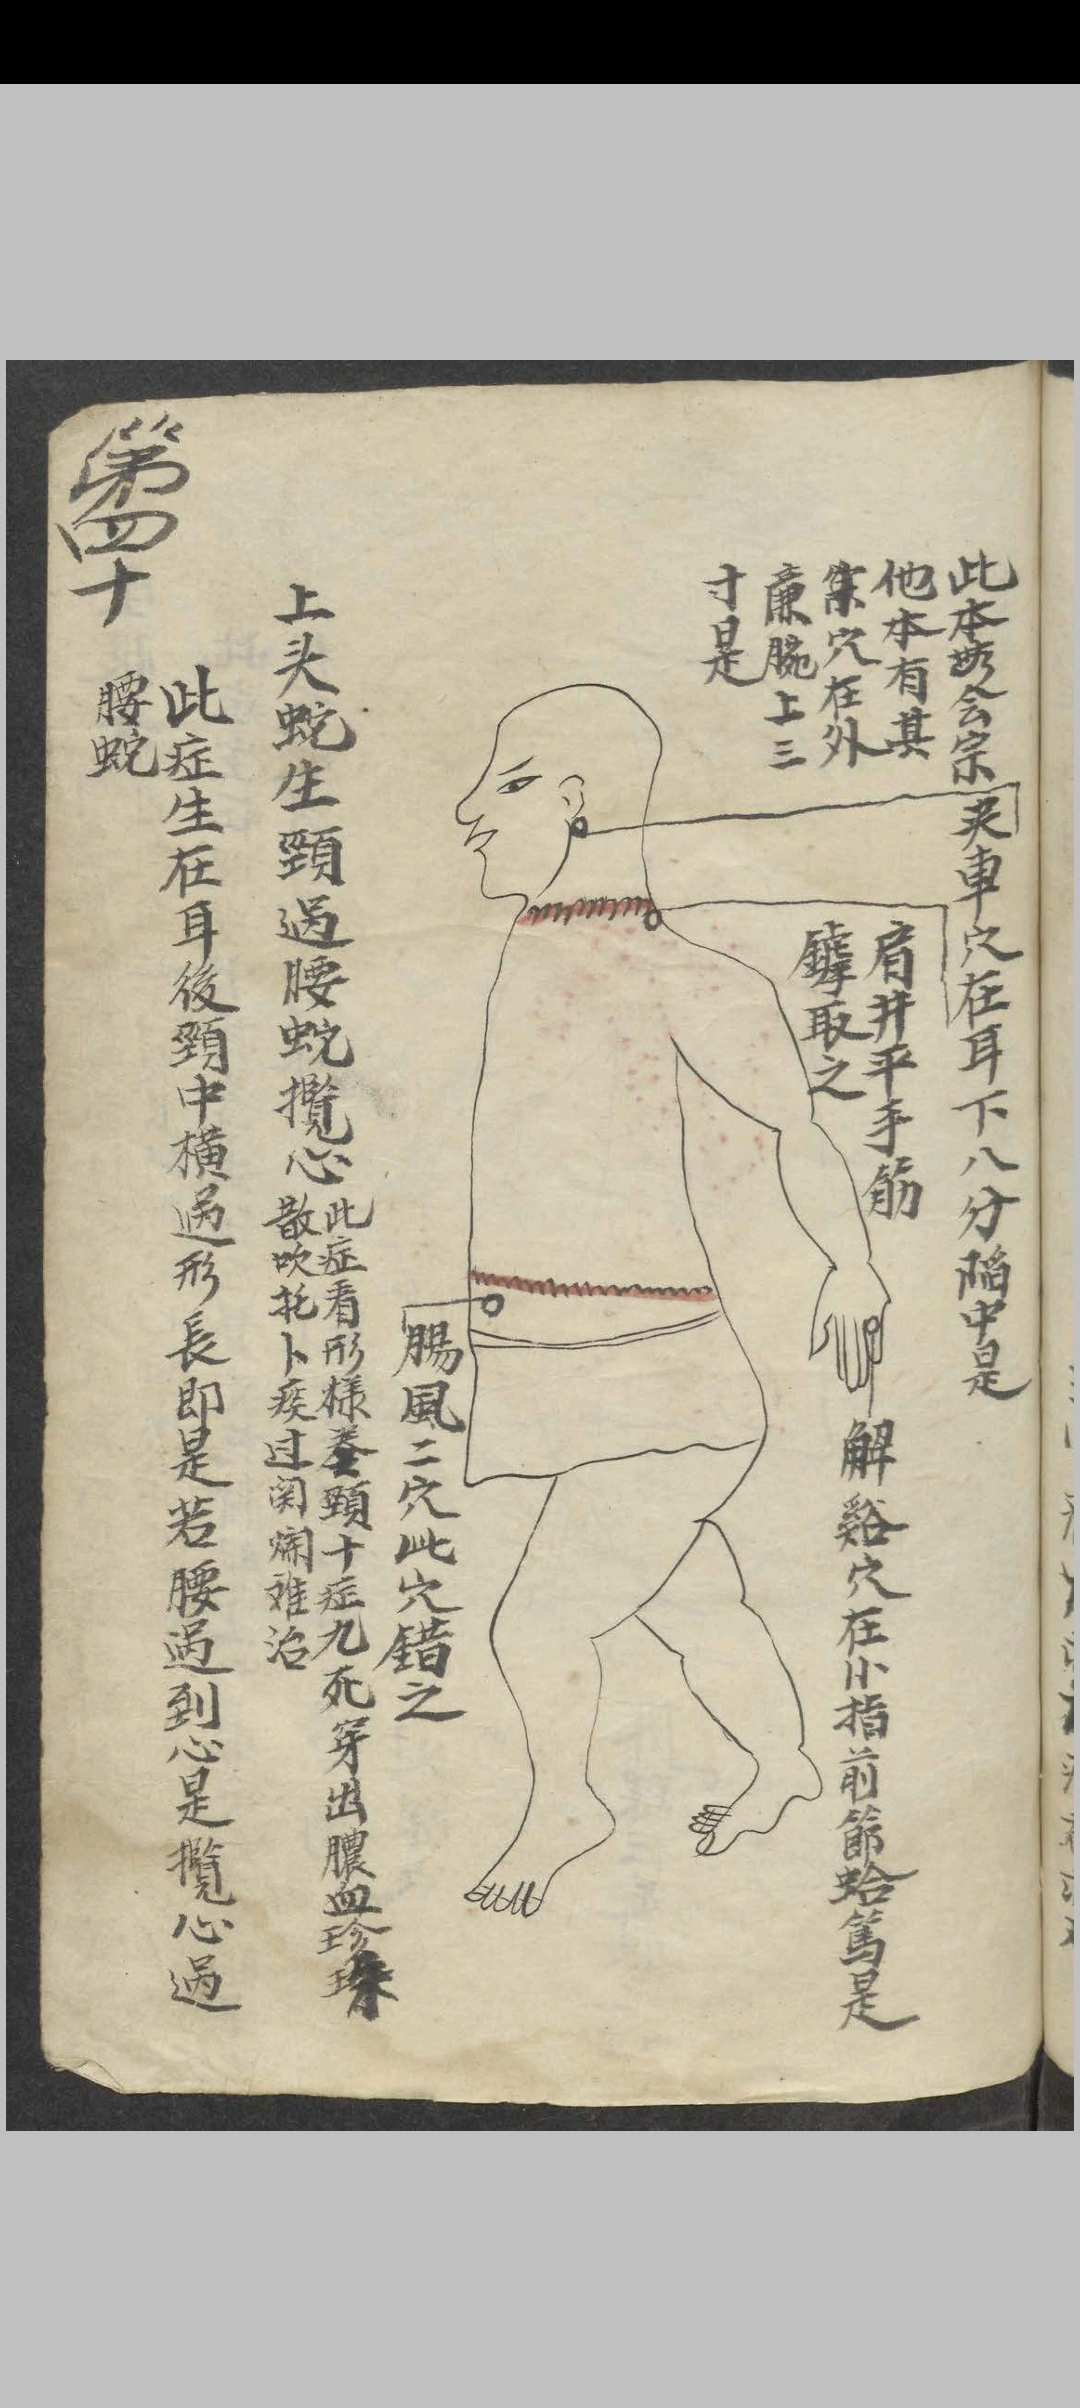 此本無会宗
他本有其
穴在外
廉腕上三
寸是
夹車穴在耳下八分陷中是
肩井平手筋
罅取之
解谿穴在小指前節蛤篤是
腸風二穴此穴錯之
上头蛇生頸過腰蛇攬心
此症看形樣養頸十症九死穿出膿血珍珠
散吹托卜疾过関爛难治
此症生在耳後頸中横過形長即是若腰過到心是攬心過
腰蛇
第四十